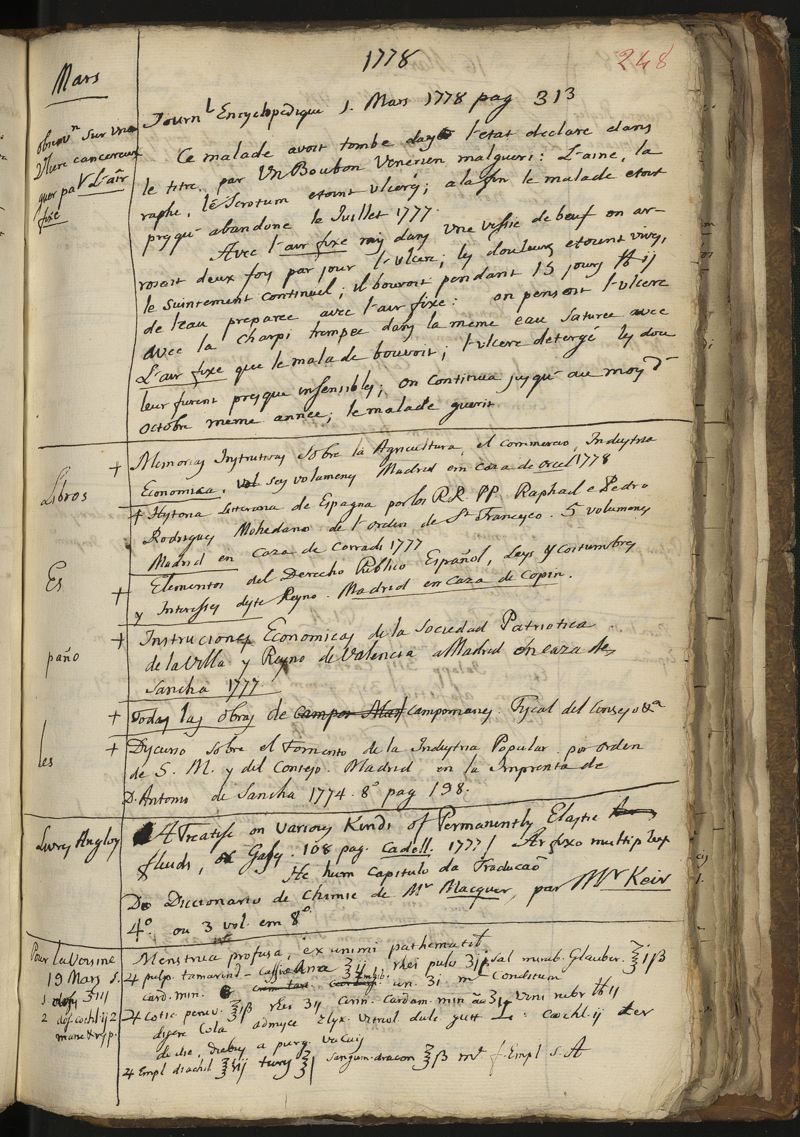 1778
248
Mars
observn Sur une
Ulcere cancereux
guer par L'air
fixe
Journl Encyclopedique 1. Mars 1778 pag 313
Ce malade avoit tombe dans l'etat declare dans
le titre, par Un Boubon Venerien malgueri: L'aine, la
raphe, le Scrotum etoint ulcerés; a la fin le malade etoit
presqué abandoné le Juillet 1777.
Avec l'air fixe mis dans une vessie de beuf on ar-
rosait deux foys par jour l'ulcere; les douleurs etoint vives,
le suintement continuel; il bouvoit pendant 15 jours ℔ ij
de l'eau preparee avec l'air fixe: on pensoit l'ulcere
avec la Charpi trempee dans la meme eau saturee avec
L'air fixe que le malade bouvoit; l'ulcere detergé les dou
leur furent presque insensibles; on continua jusqué au moys d'
Octobre meme année; le malade guerit
Libros
Es
paño
les
+ Memorias Instrutivas Sobre la Agricultura, el Commercio, Industria
Economica, vol seys volumenes Madrid em caza de Orcel 1778
+ Historia Litteraria de Espagna por los RR. PP. Raphael e Pedro
Rodrigues Mohedano de l'Orden de St Francesco. 5 volumenes
Madrid en Caza de Corradi 1777
+ Elementos del Derecho Publico Español, Leys y Costumbres
y Interesses deste Reyno. Madrid en Caza de Copin.
+ Instruciones Economicas de la Sociedad Patriotica
de la Villa y Reyno de Valencia a Madrid en caza de
Sancha 1777.
+ Todas las obras de Campomanes. Fyscal del Consejo &a
+ Dyscurso sobre el Fomento de la Industria Popular. por orden
de S. M. y del Consejo. Madrid en la Imprenta de
D. Antonio de Sancha 1774. 8º pag 198.
Livres Angloys
A Treatise on Various Kinds of Permanently Elastic
fluids, or Gases. 108 pag. Cadell. 1777 / Ar fixo multiplex
He hum Capitulo da Traducaõ
Do Diccionario de Chimie de Mr Macquer, par Mr Keir
4º. ou 3 vol. em 8º
Pour la Voisine
19 Mars
Menstrua profusa, ex animi pathematis
♃ pulp. tamarind - cassiæ ana ℥ij rhei pulv ʒij sal mirab. Glauber. ℥jβ
card. min. un. ʒi. m Conditum
♃ cotic peruv. ℥jβ rhei ʒij Cinn. Cardam. min aã ʒj Vini rubr ℔ij
digere Cola admisce Elyx. Vitriol. dulc. gutt Coochl. ij ter
de die, diebus a purg. vacuis
♃ Empl diachil ℥ij ℥j Sanguin. dracon ℥β m f. Empl S. A
1
2